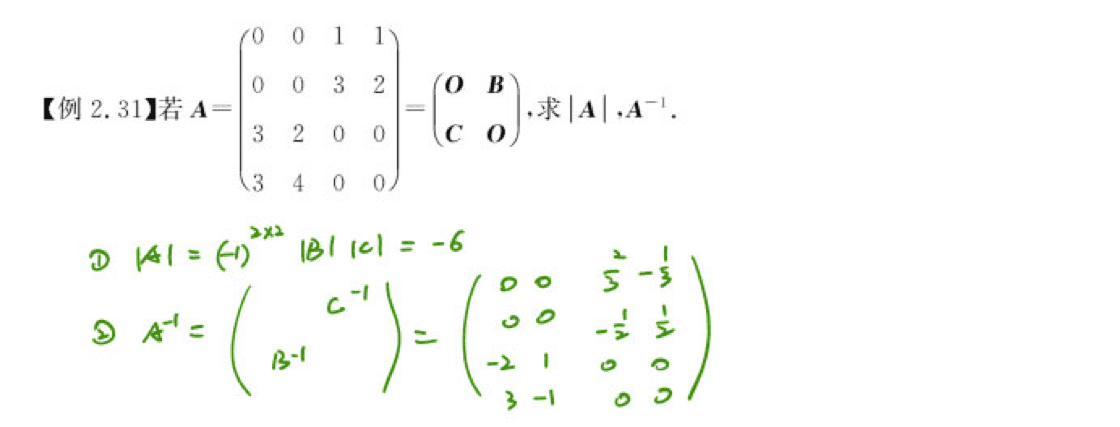 【例 2.31】若 A = \begin{pmatrix} 0 & 0 & 1 & 1 \\ 0 & 0 & 3 & 2 \\ 3 & 2 & 0 & 0 \\ 3 & 4 & 0 & 0 \end{pmatrix} = \begin{pmatrix} O & B \\ C & O \end{pmatrix},求|A|,A^{-1}.
① |A| = (-1)^{2×2} |B| |C| = -6
② A^{-1} = \begin{pmatrix} & C^{-1} \\ B^{-1} & \end{pmatrix} = \begin{pmatrix} 0 & 0 & \frac{2}{3} & -\frac{1}{3} \\ 0 & 0 & -\frac{1}{2} & \frac{1}{2} \\ -2 & 1 & 0 & 0 \\ 3 & -1 & 0 & 0 \end{pmatrix}